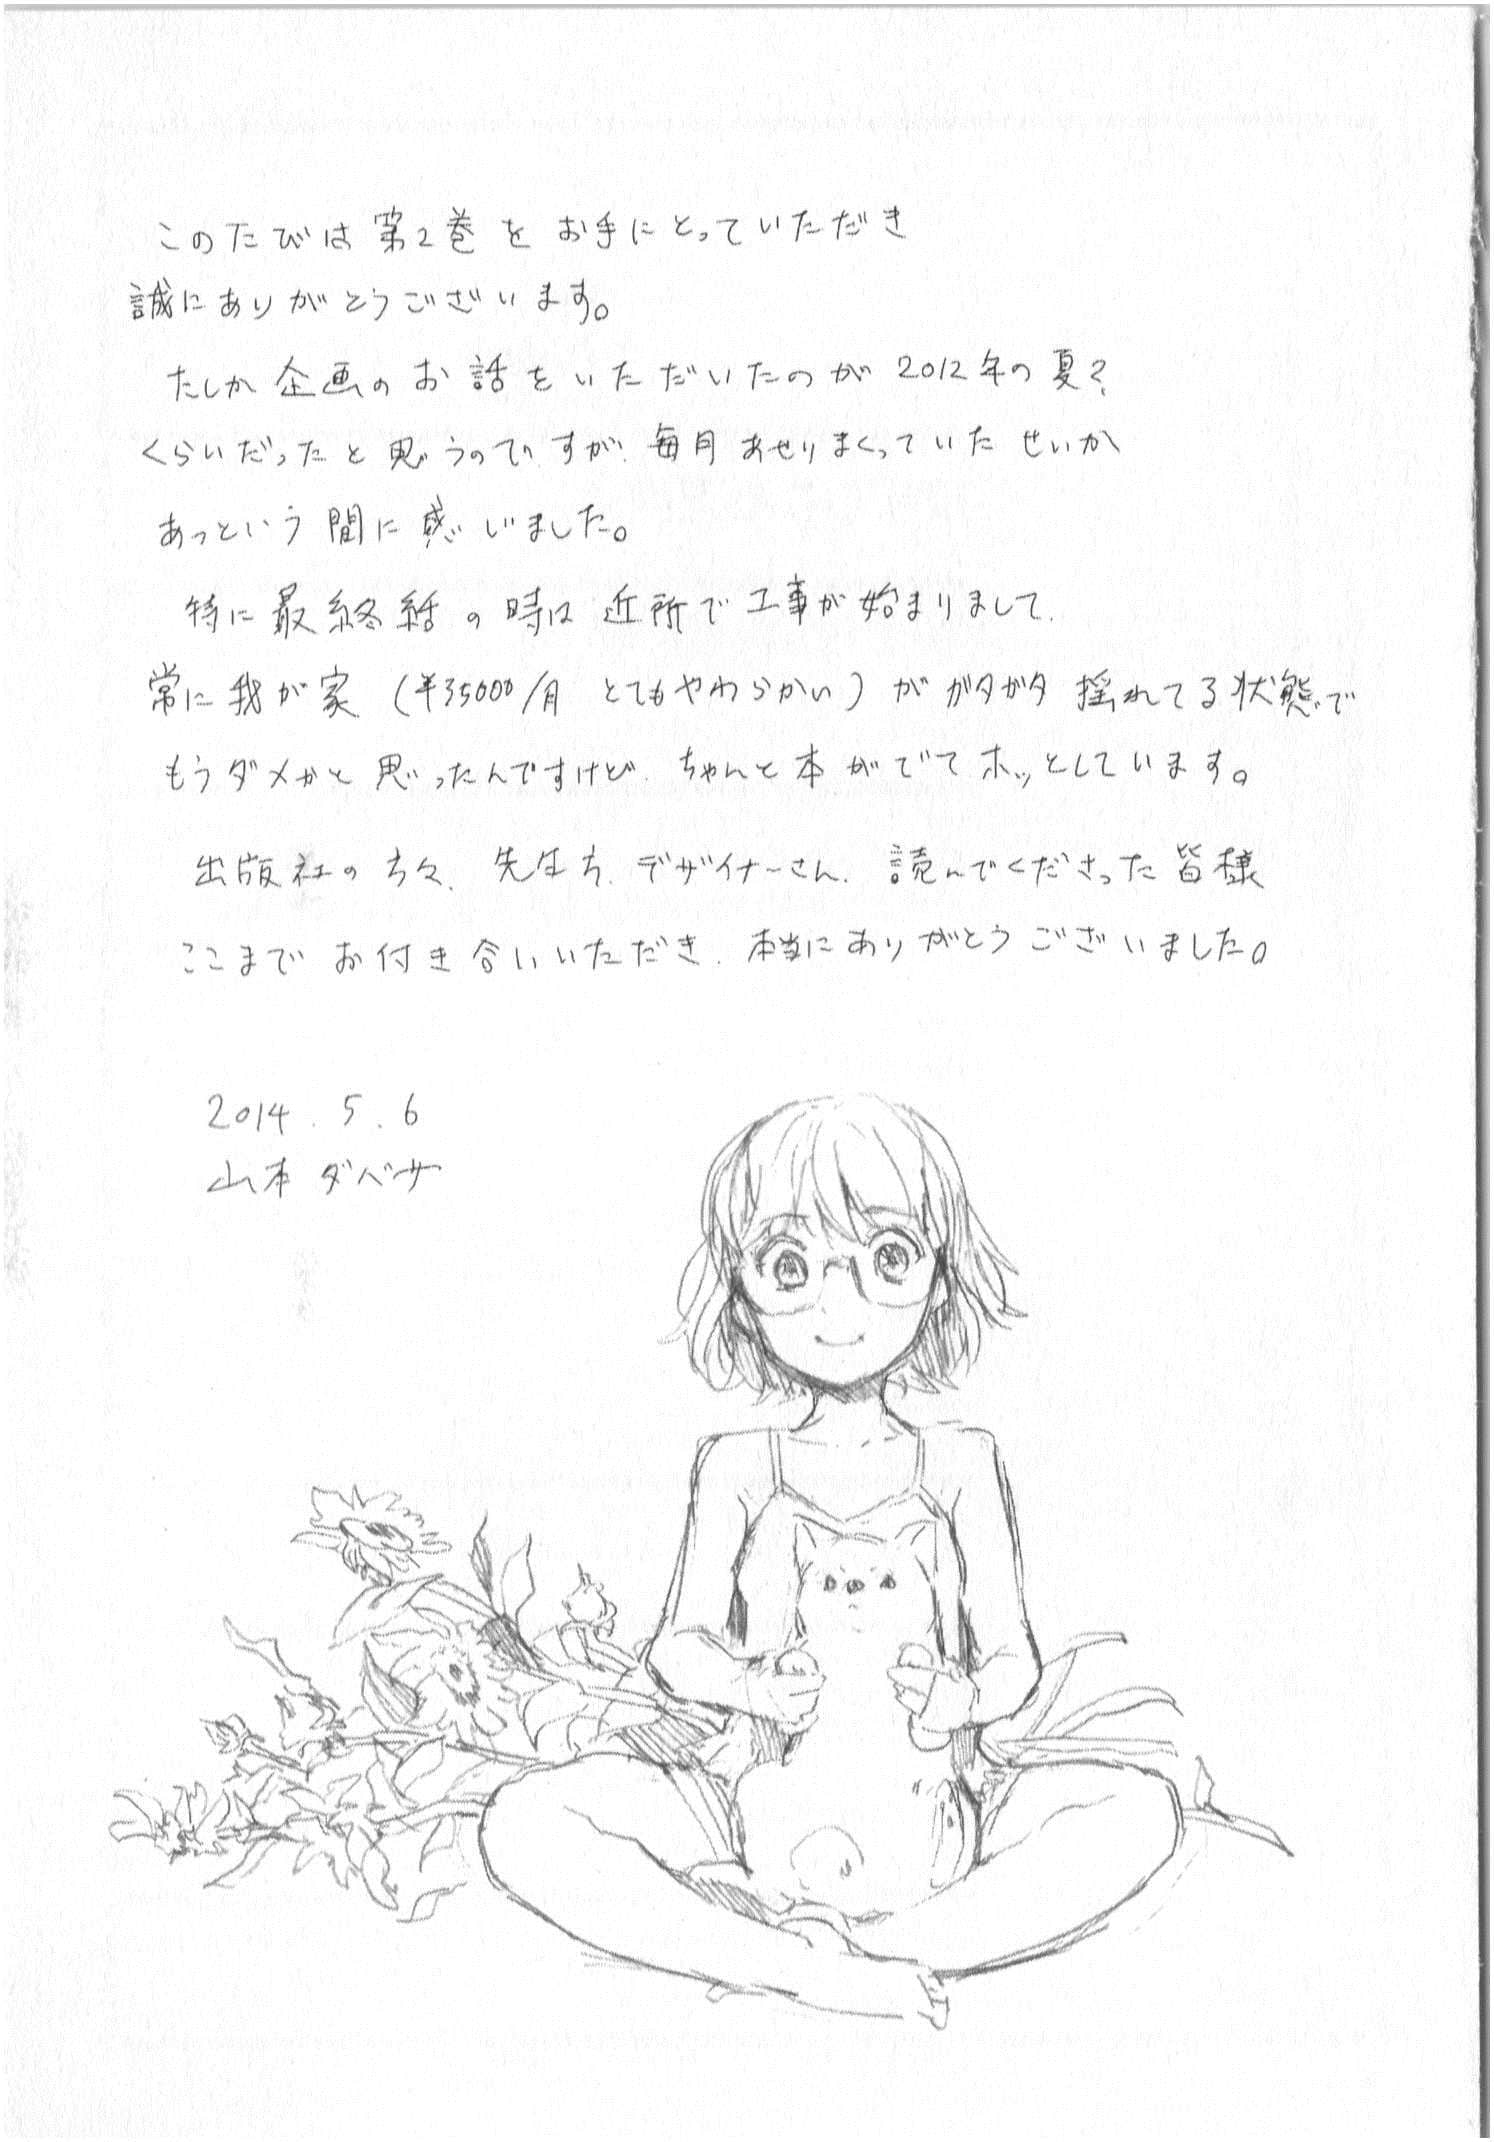 このたびは第2巻をお手にとっていただき
誠にありがとうございます。
たしか企画のお話をいただいたのが2012年の夏?
くらいだったと思うのですが、毎月あせりまくっていたせいか
あっという間に感じました。
特に最終話の時は近所で工事が始まりまして、
常に我が家(¥35000/月 とてもやわらかい)がガタガタ揺れてる状態で
もうダメかと思ったんですけど、ちゃんと本がでてホッとしています。
出版社の方々、先生方、デザイナーさん、読んでくださった皆様
ここまでお付き合いいただき、本当にありがとうございました。
2014.5.6
山本ダベサ